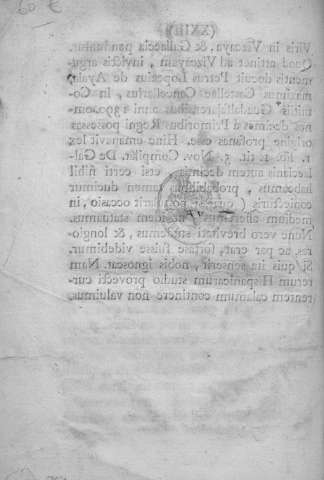 60 €
(XXII)
Viris in Viscaya, & Gallaecia panduntur.
Quod attinet ad Viscayam, invictis argu-
mentis docuit Petrus Lopetius de Ayala,
maximus Castellae Cancellarius, in Co-
mitiis Guadalajarensibus anni 1390. om-
nes decimas à Primoribus Regni possessas
origine profanas esse. Hinc emanavit lex
1. tit. 5. Nov. Compilat. De Gal-
laecianis autem decimis, etsi certi nihil
habeamus, probabiliter tamen ducimur
conjecturis ( occasio, in
medium afferamus) idem statuamus.
Nunc vero brevitati studemus, & longio-
res, ac par erat, fortase fuisse videbimur.
Si quis ita senserit, nobis ignoscat. Nam
rerum Hispanicarum studio provecti cur-
rentem calamum continere non valuimus.